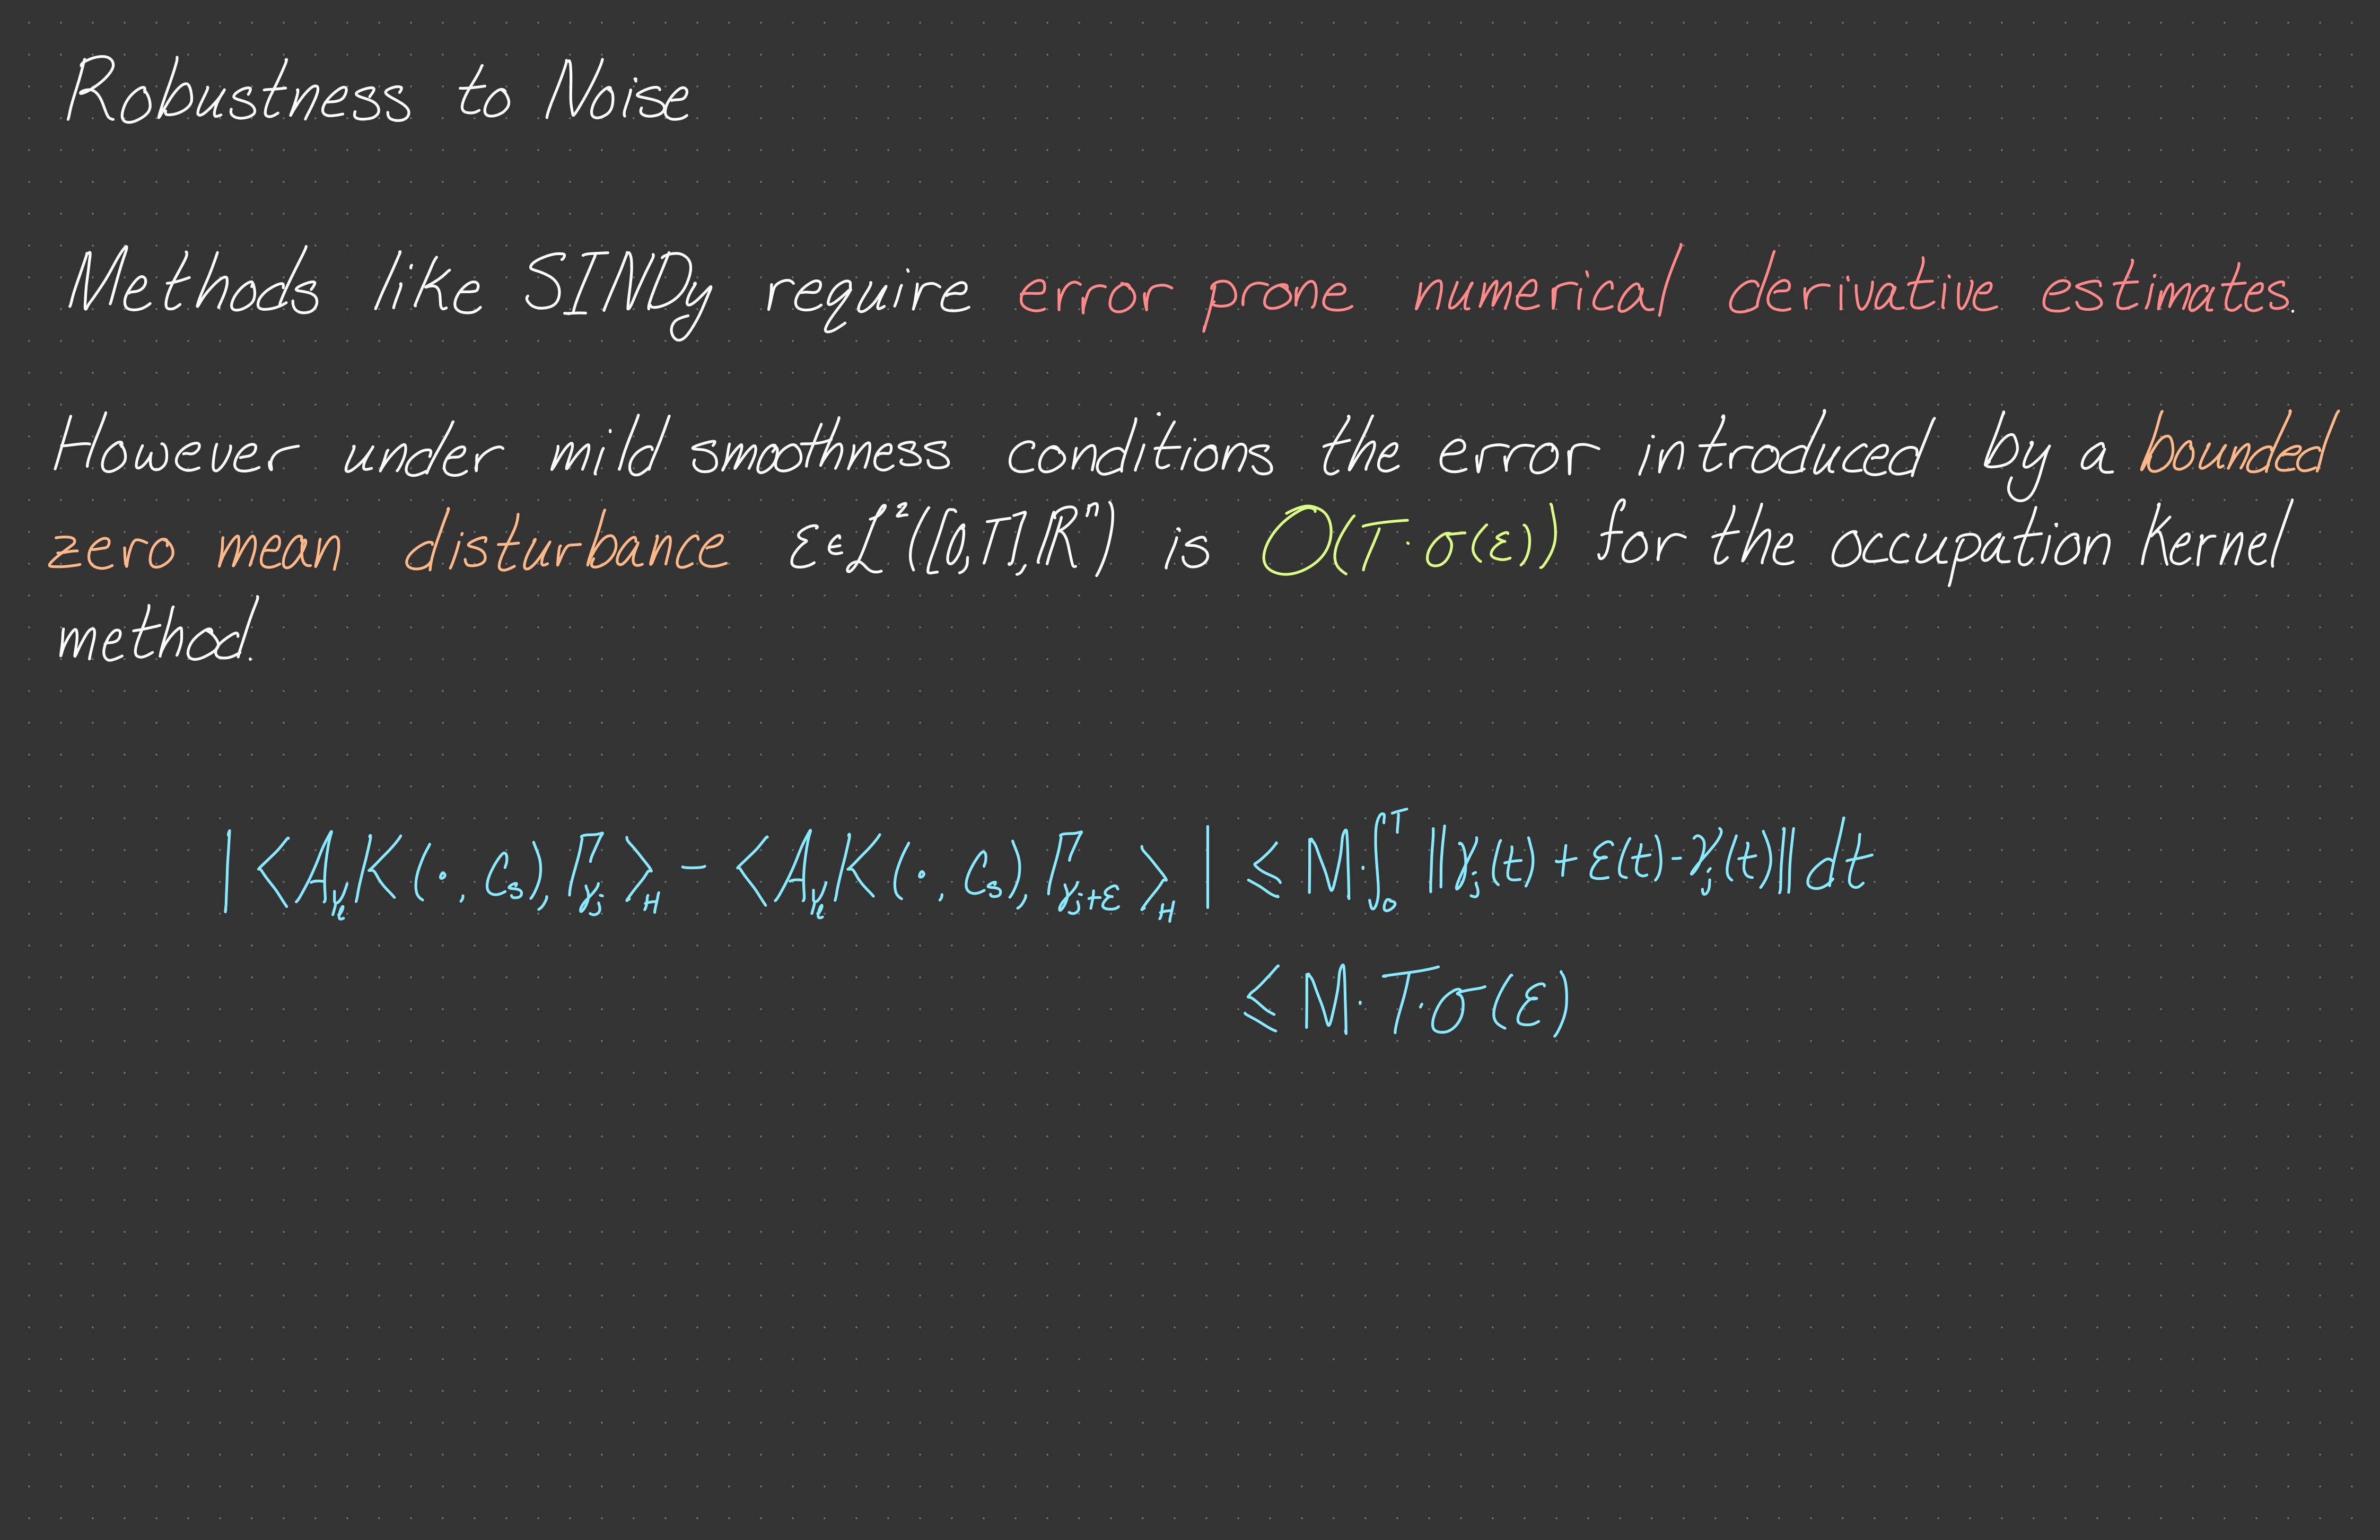 Robustness to Noise
Methods like SINDy require error prone numerical derivative estimates.
However under mild smoothness conditions the error introduced by a bounded
zero mean disturbance ε∈L²([0,T],ℝⁿ) is O(T·σ(ε)) for the occupation kernel
method.
|<A_{Y_ℓ}K(·,c_s),Γ_{γ_j}>_H - <A_{Y_ℓ}K(·,c_s),Γ_{γ_j+ε}>_H| ≤ M·∫₀ᵀ ‖γ_j(t)+ε(t)-γ_j(t)‖dt
≤ M·T·σ(ε)